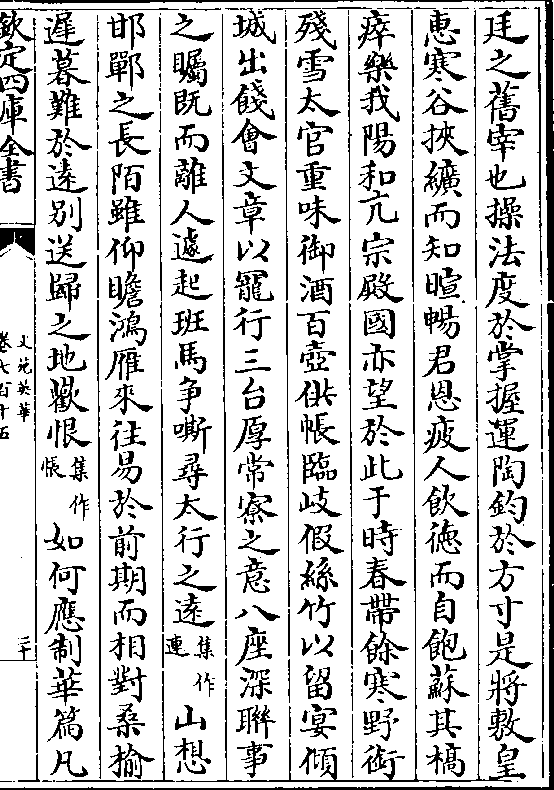 廷之舊宰也操法度於掌握運陶鈞於方寸是將敷皇
惠寒谷挾纊而知暄暢君恩疲人飲徳而自飽蘇其槁
瘁樂我陽和亢宗殿國亦望於此于時春帶餘寒野銜
殘雪太官重味御酒百壺供帳臨岐假絲竹以留宴傾
城出餞會文章以寵行三台厚常寮之意八座深聯事
之矚既而離人遽起班馬争嘶尋太行之逺集作連山想
邯鄲之長陌雖仰瞻鴻雁來往易於前期而相對桑榆
遲暮難於逺别送歸之地歡恨集作悵如何應制華篇凡
欽定四庫全書
文苑英華
卷七百十五
二十